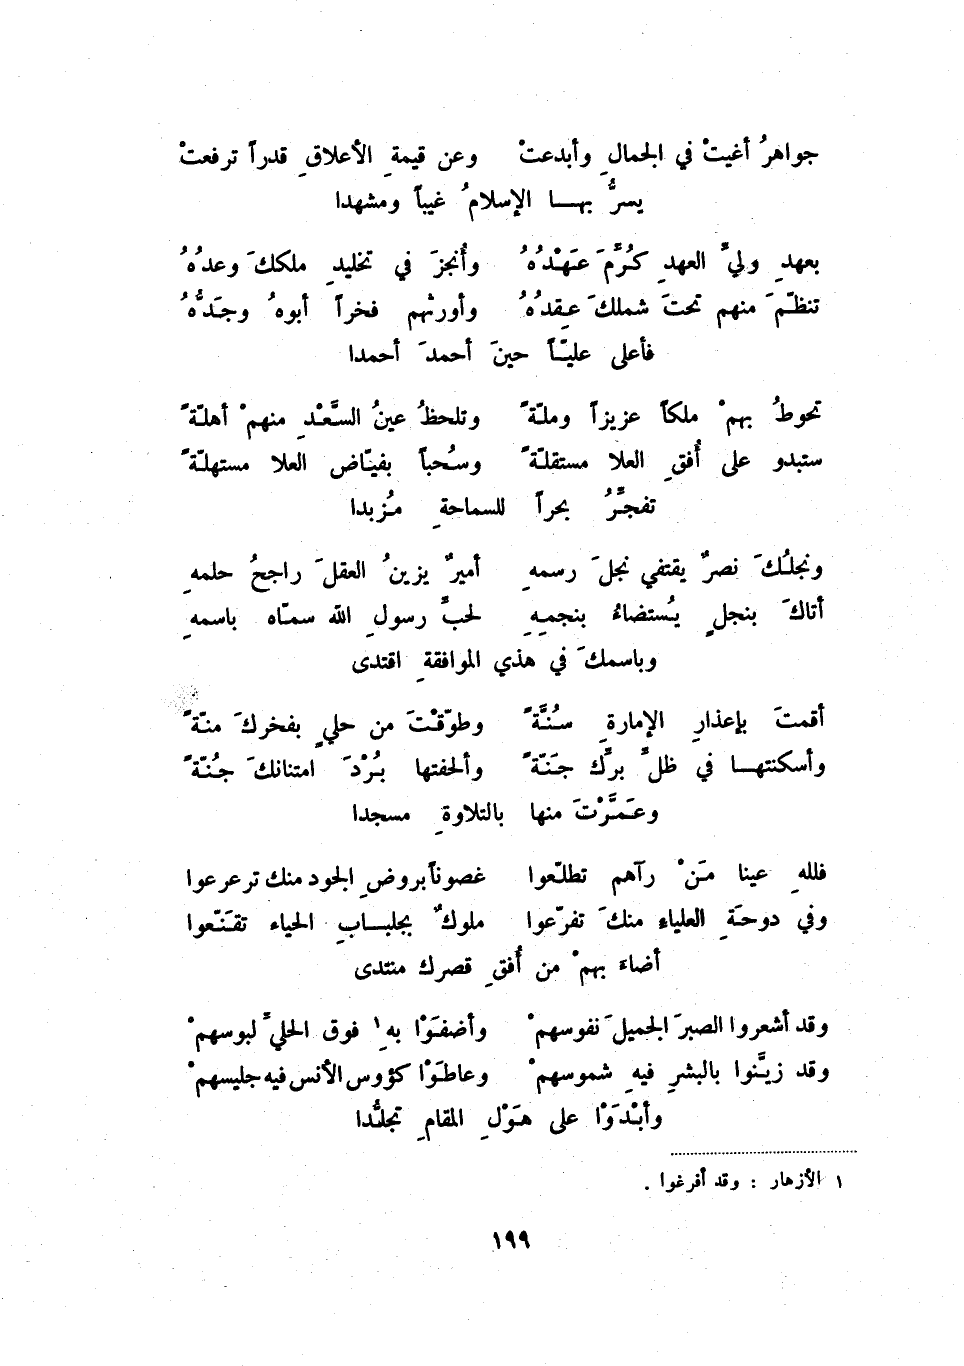 جواهرُ أغيتْ في الجمالِ وأبدعتْ وعن قيمةِ الأعلاقِ قدراً ترفعتْ
يسرُّ بهـــا الإسلامُ غيباً ومشهدا
بعهدِ وليِّ العهدِ كُرِّمَ عَهْدُهُ وأُنجزَ في تخليدِ ملككَ وعدُهُ
تنظّمَ منهم تحتَ شملكَ عِقدُهُ وأورثهم فخراً أبوهُ وجَدُّهُ
فأعلى عليّاً حينَ أحمدَ أحمدا
تحوطُ بهمْ ملكاً عزيزاً وملّةً وتلحظُ عينُ السَّعْدِ منهمْ أهلّةً
ستبدو على أُفقِ العلا مستقلّةً وسُحباً بفيّاض العلا مستهلّةً
تفجِّرُ بحراً للسماحةِ مُزبدا
ونجلُكَ نصرٌ يقتفي نجلَ رسمهِ أميرٌ يزينُ العقلَ راجحُ حلمهِ
أتاكَ بنجلٍ يُستضاءُ بنجمِهِ لحبِّ رسولِ الله سمّاه باسمهِ
وباسمكَ في هذي الموافقةِ اقتدى
أقمتَ بإعذارِ الإمارةِ سُنَّةً وطوّقْتَ من حليٍ بفخركَ منّةً
وأسكنتهــا في ظلِّ برِّك جَنّةً وألحفتها بُرْدَ امتنانكَ جُنّةً
وعَمَّرْتَ منها بالتلاوةِ مسجدا
فللهِ عينا مَنْ رآهم تطلّعوا غصوناً بروضِ الجود منك ترعرعوا
وفي دوحَةِ العلياءِ منكَ تفرّعوا ملوكٌ بجلبــابِ الحياء تقَنّعوا
أضاءَ بهمْ من أُفقِ قصرك منتدى
وقد أشعروا الصبرَ الجميلَ نفوسهمْ وأضفَوْا بهِ ١ فوق الحليِّ لبوسهمْ
وقد زيَّنوا بالبشرِ فيهِ شموسهمْ وعاطَوْا كؤوس الأنس فيه جليسهمْ
وأبْدَوْا على هَوْلِ المقامِ تجلُّدا
١ الأزهار : وقد أفرغوا .
١٩٩